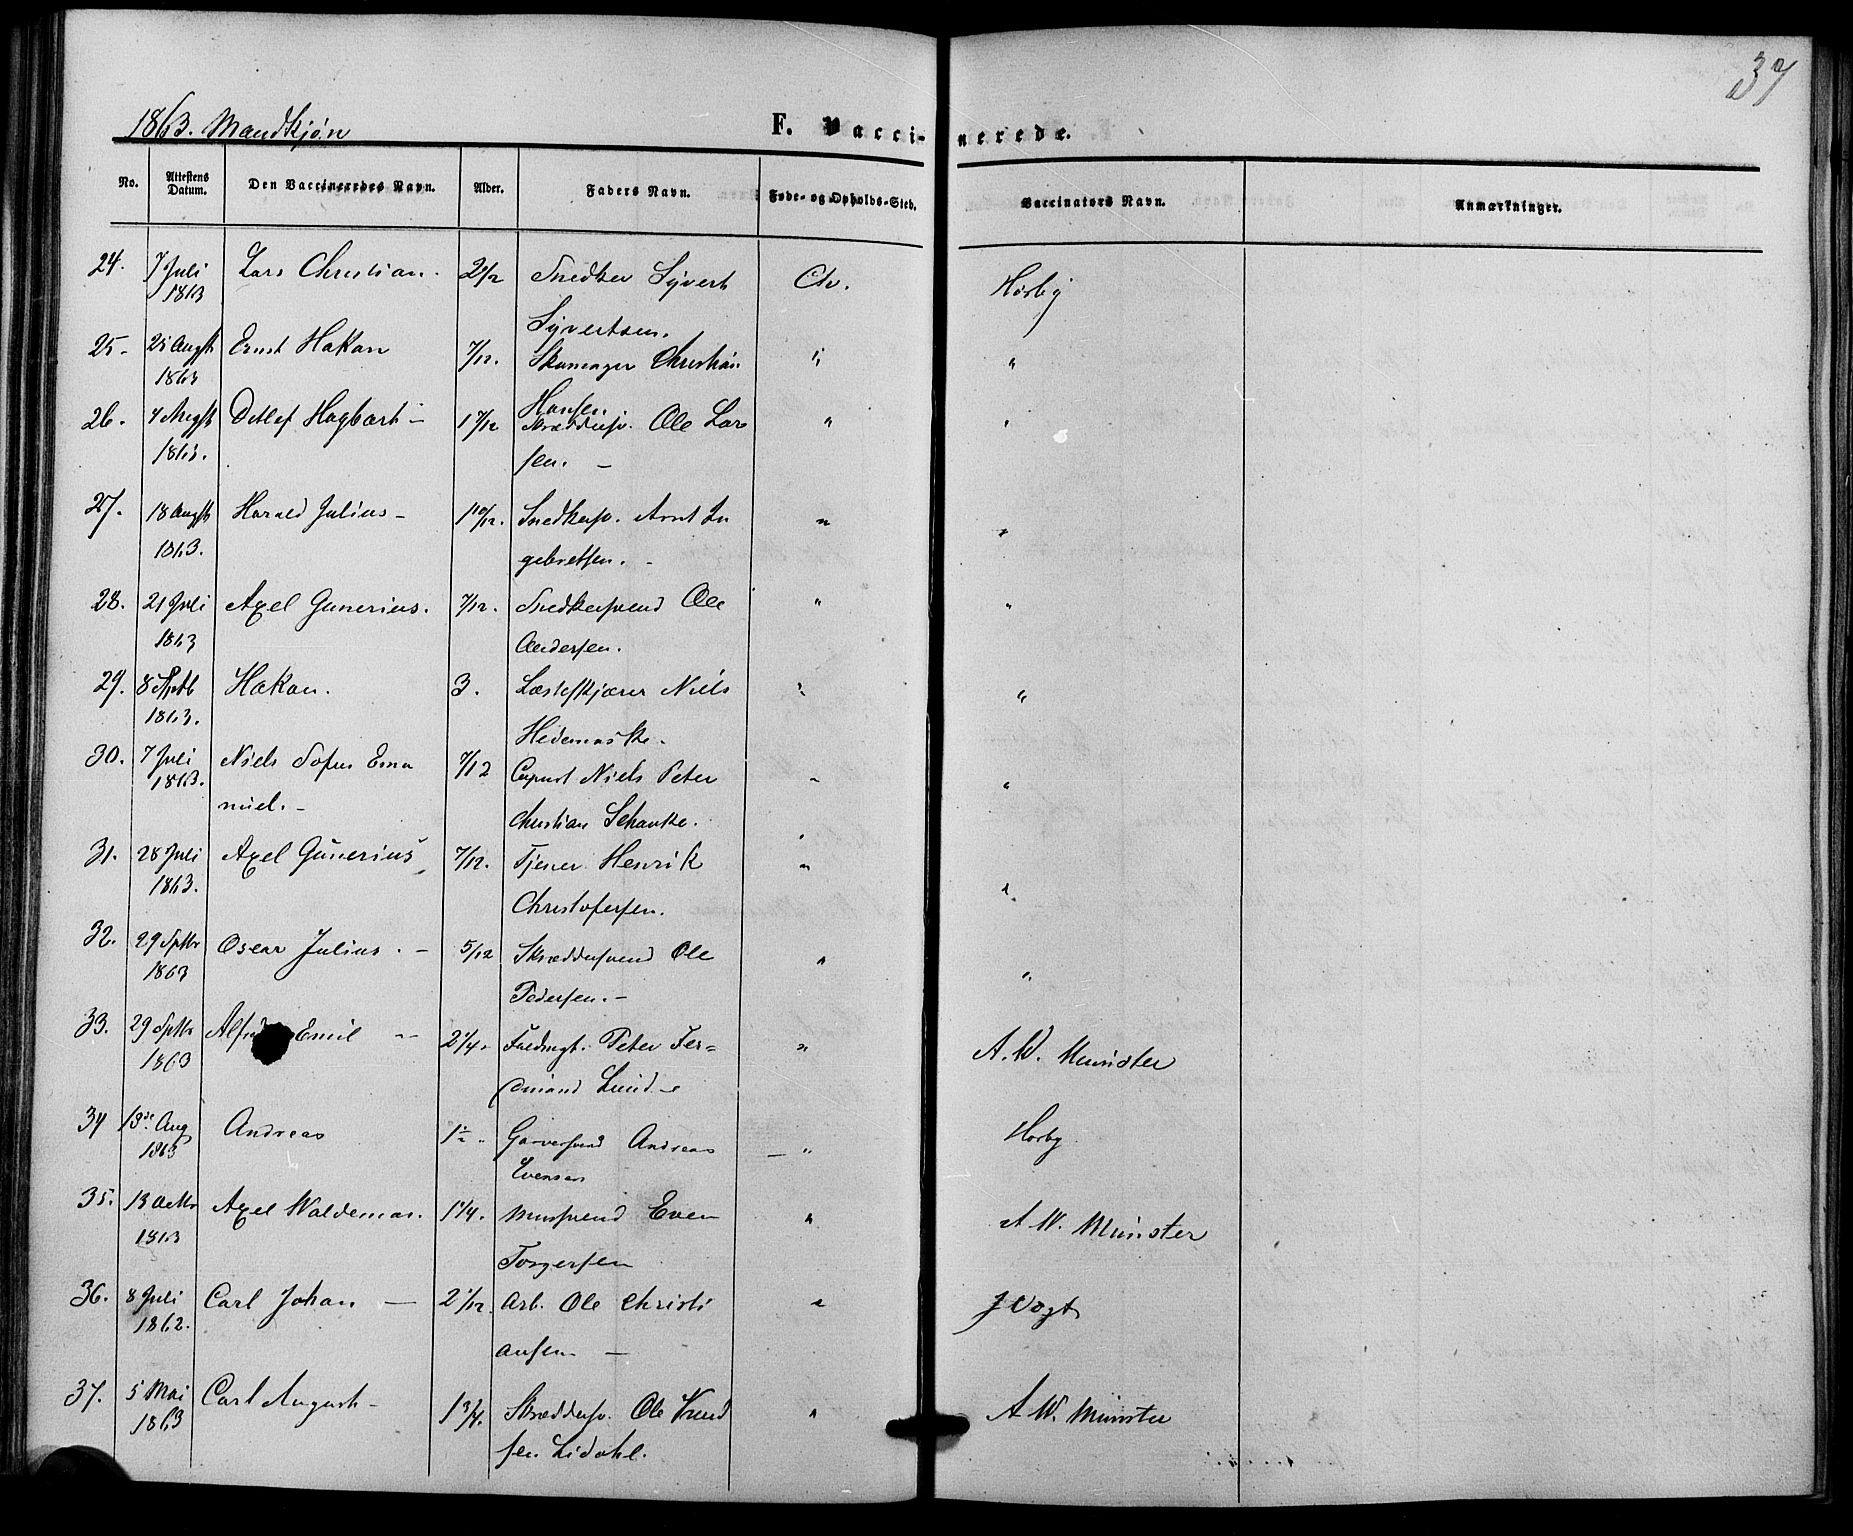 37
1863. Mandkjøn
F. Vaccinerede.
No. Attestens Datum. Den Vaccineredes Navn. Alder. Faders Navn. Føde- og Opholds-Sted. Vaccinators Navn. Anmærkninger.
24. 7 Juli Lars Christian. Snedker Syvert Chr. Horby
1863 Syvertsen.
25. Augst Ernst Hakan 7/12. Christian " "
1863 Hansen
26. 4 Augst Detlef Hagbart - 1 7/12 Skræddersv. Ole Lar " "
1863. sen. -
27. 18 Augst Harald Julius - 1 10/12. Snedkersv. Arnt In " "
1863. gebretsen. -
28. 21 Juli Axel Gunerius. 7/12. Snedkersvend Ole " "
1863 Andersen.
29. 8 Septb Hakan. 3. Niels " "
1863. Hedemarke.
30. 7 Juli Niels Sofus Ema 7/12 Niels Peter " "
1863. nuel. - Christian Schanke.
31. 28 Juli Axel Gunerius 7/12. Tjener Henrik " "
1863. Christofersen.
32. 29 Septbr Oscar Julius. - 5/12 Skræddersvend Ole " "
1863 Pedersen. -
33. 29 Septbr Emil 2 1/4. Fuldmgt. Peter Fer= " A. W. Münster
1863 dinand Lund -
34 13de Aug Andreas 1 1/2. Garversvend Andreas - " Horby
1863 Evensen
35. 13 Octbr Axel Waldemar. 1 1/4. Mursvend Even " A. W. Münster
1863 Torgersen
36. 8 Juli Carl Johan - 2 1/12. Arb. Ole Christi " J Vogt
1862. ansen -
37. 5 Mai Carl August - 1 3/4. Skræddersv. Ole Knud " A. W. Münster
1863 sen Lidahl.